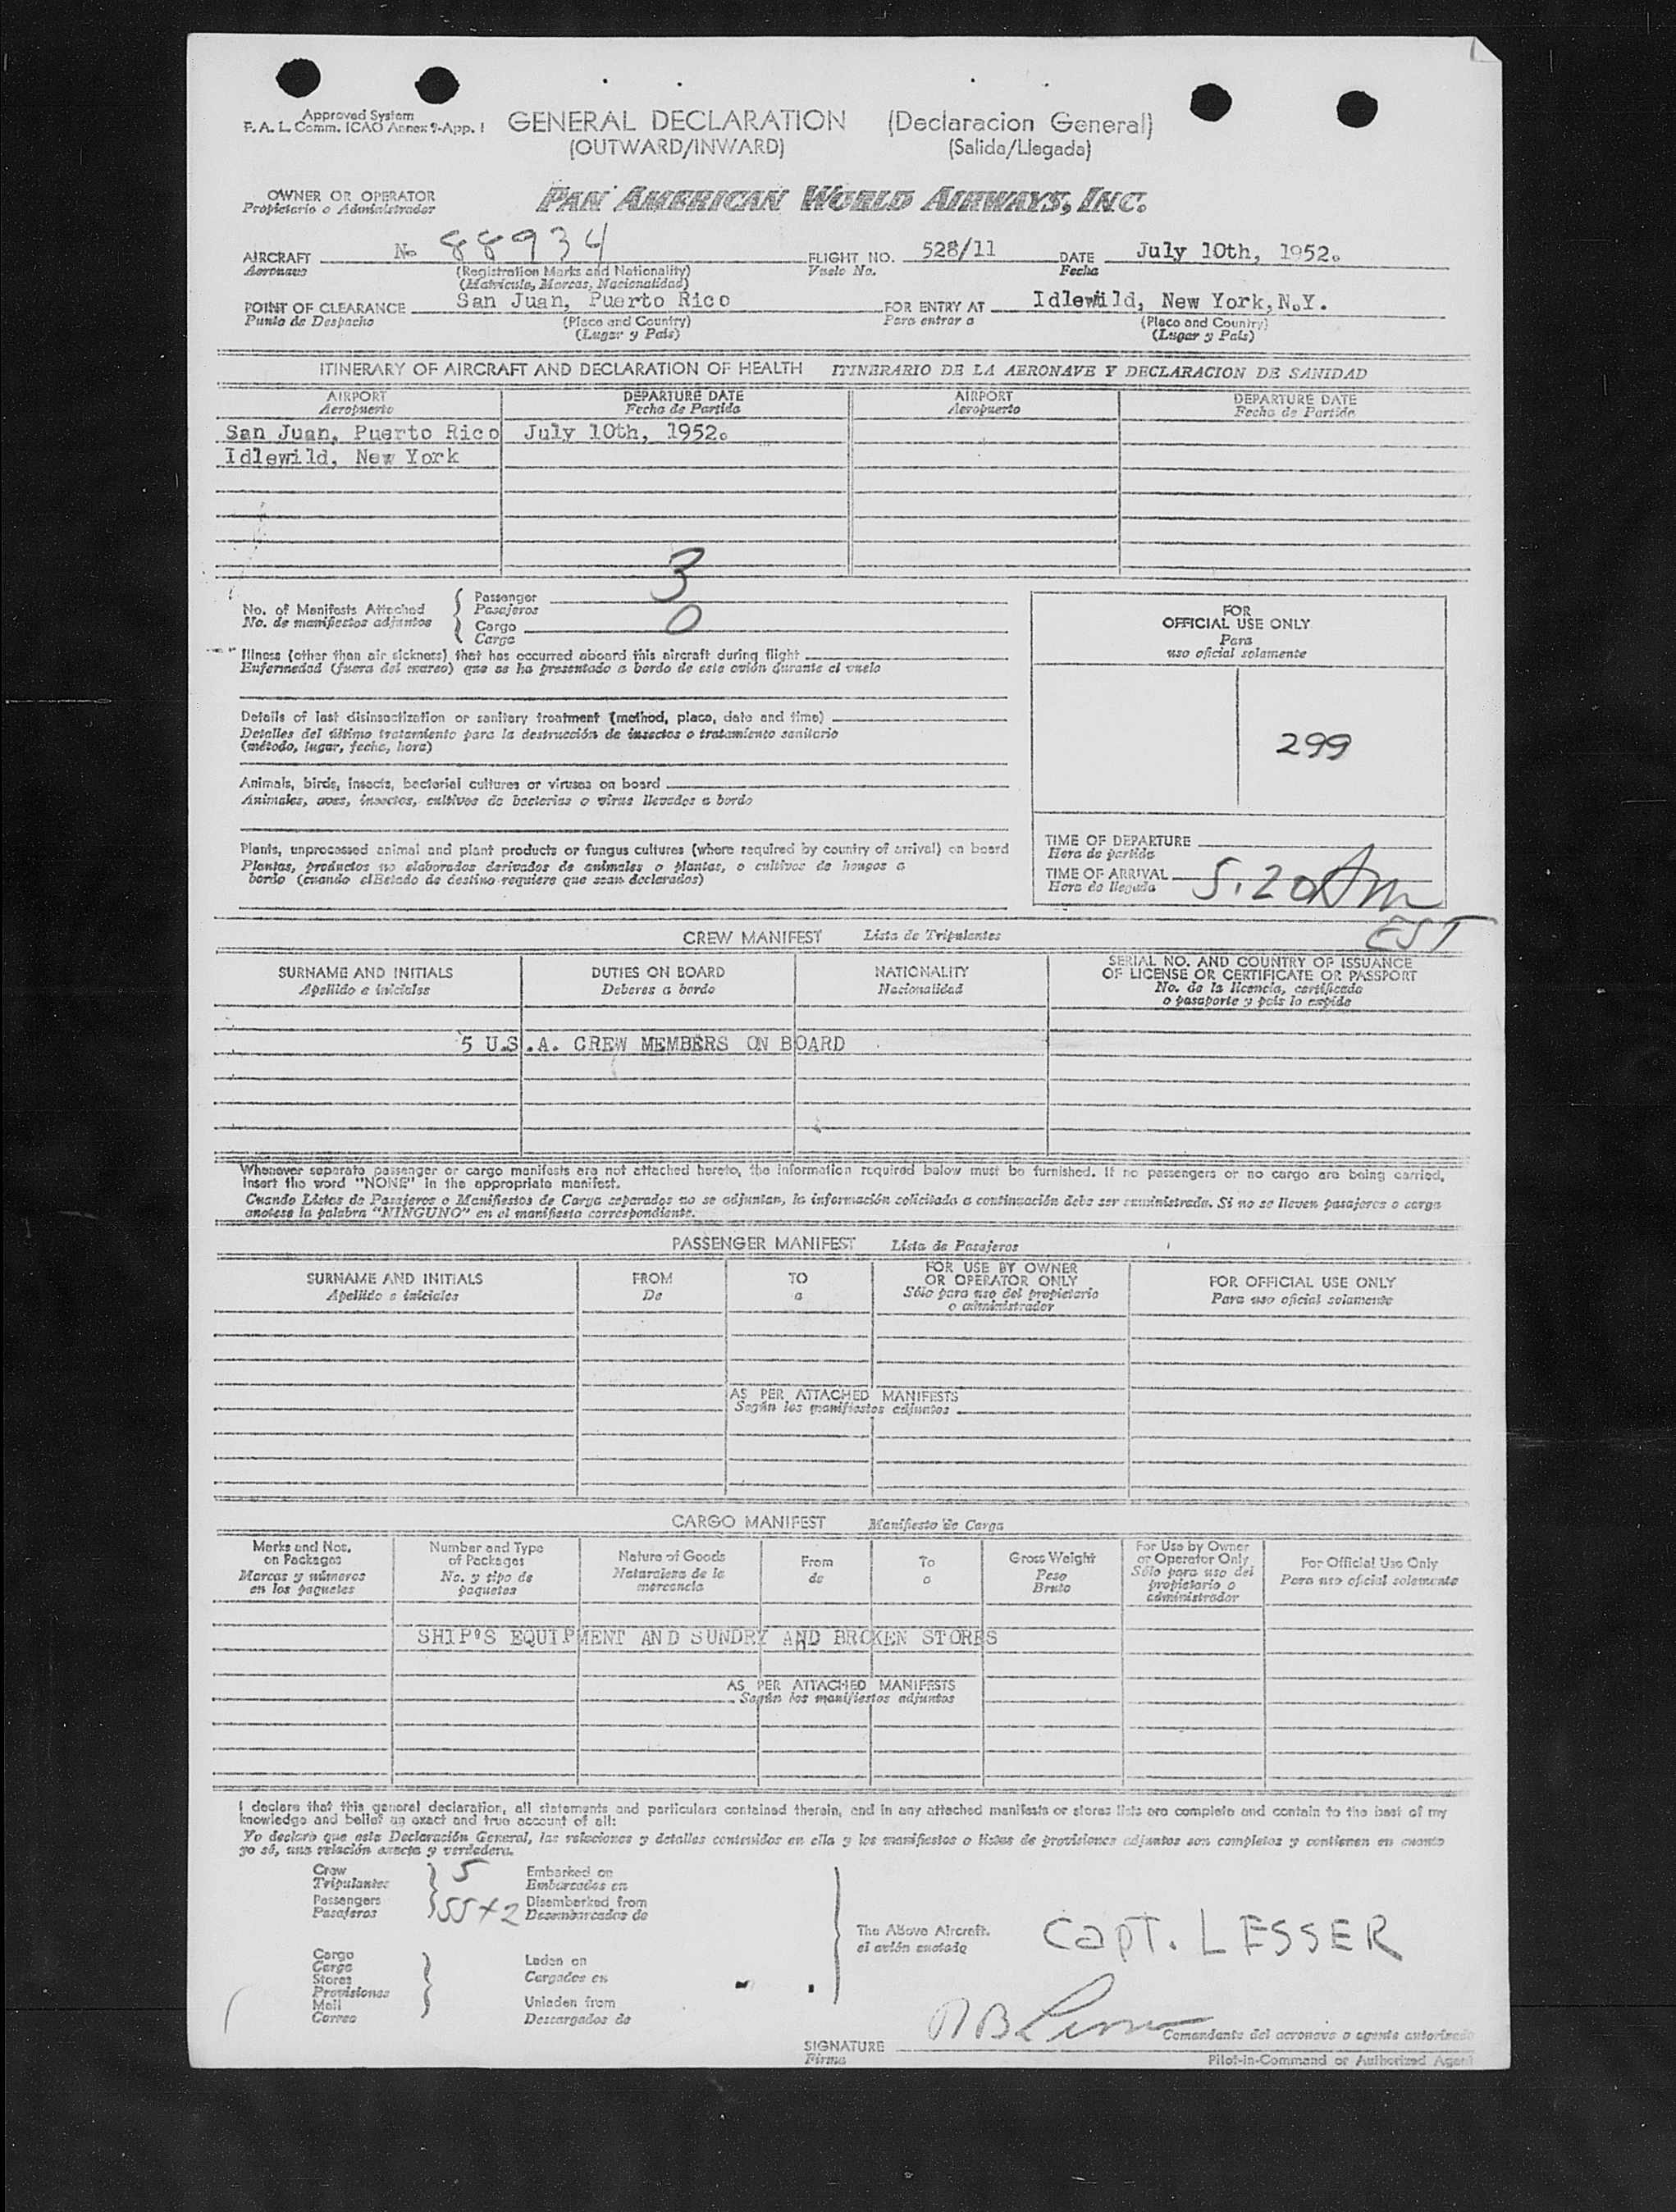 Approved System
F. A. L. Comm. ICAO Annex 9-App. 1
GENERAL DECLARATION (Declaracion General)
(OUTWARD/INWARD) (Salida/Llegada)
OWNER OR OPERATOR
Propietario o Administrador
PAN AMERICAN WORLD AIRWAYS, INC.
AIRCRAFT No 88934 FLIGHT NO. 528/11 DATE July 10th, 1952.
Aeronave (Registration Marks and Nationality) Vuelo No. Fecha
(Matricula, Marcas, Nacionalidad)
POINT OF CLEARANCE San Juan, Puerto Rico FOR ENTRY AT Idlewild, New York, N.Y.
Punto de Despacho (Place and Country) Para entrar a (Place and Country)
(Lugar y País) (Lugar y País)
ITINERARY OF AIRCRAFT AND DECLARATION OF HEALTH ITINERARIO DE LA AERONAVE Y DECLARACION DE SANIDAD
AIRPORT DEPARTURE DATE AIRPORT DEPARTURE DATE
Aeropuerto Fecha de Partida Aeropuerto Fecha de Partida
San Juan, Puerto Rico July 10th, 1952.
Idlewild, New York
No. of Manifests Attached
No. de manifiestos adjuntos
Passenger 3
Pasajeros
Cargo 0
Carga
Illness (other than air sickness) that has occurred aboard this aircraft during flight
Enfermedad (fuera del mareo) que se ha presentado a bordo de este avión durante el vuelo
Details of last disinsectization or sanitary treatment (method, place, date and time)
Detalles del último tratamiento para la destrucción de insectos o tratamiento sanitario
(método, lugar, fecha, hora)
Animals, birds, insects, bacterial cultures or viruses on board
Animales, aves, insectos, cultivos de bacterias o virus llevados a bordo
Plants, unprocessed animal and plant products or fungus cultures (where required by country of arrival) on board
Plantas, productos no elaborados derivados de animales o plantas, o cultivos de hongos a
bordo (cuando el Estado de destino requiere que sean declarados)
FOR
OFFICIAL USE ONLY
Para
uso oficial solamente
299
TIME OF DEPARTURE
Hora de partida
TIME OF ARRIVAL 5.20 Am
Hora de llegada
EST
CREW MANIFEST Lista de Tripulantes
SURNAME AND INITIALS DUTIES ON BOARD NATIONALITY SERIAL NO. AND COUNTRY OF ISSUANCE
OF LICENSE OR CERTIFICATE OR PASSPORT
Apellido e iniciales Deberes a bordo Nacionalidad No. de la licencia, certificado
o pasaporte y país lo expide
5 U.S.A. CREW MEMBERS ON BOARD
Whenever separate passenger or cargo manifests are not attached hereto, the information required below must be furnished. If no passengers or no cargo are being carried,
insert the word "NONE" in the appropriate manifest.
Cuando Listas de Pasajeros o Manifiestos de Carga separados no se adjuntan, la información solicitada a continuación debe ser suministrada. Si no se lleven pasajeros o carga
anotese la palabra "NINGUNO" en el manifiesto correspondiente.
PASSENGER MANIFEST Lista de Pasajeros
SURNAME AND INITIALS FROM TO FOR USE BY OWNER
OR OPERATOR ONLY FOR OFFICIAL USE ONLY
Apellido e iniciales De a Sólo para uso del propietario
o administrador Para uso oficial solamente
AS PER ATTACHED MANIFESTS
Según los manifiestos adjuntos
CARGO MANIFEST Manifiesto de Carga
Marks and Nos.
on Packages
Marcas y números
en los paquetes
Number and Type
of Packages
No. y tipo de
paquetes
Nature of Goods
Naturaleza de la
mercancia
From
de
To
a
Gross Weight
Peso
Bruto
For Use by Owner
or Operator Only
Sólo para uso del
propietario o
administrador
For Official Use Only
Para uso oficial solamente
SHIP'S EQUIPMENT AND SUNDRY AND BROKEN STORES
AS PER ATTACHED MANIFESTS
Según los manifiestos adjuntos
I declare that this general declaration, all statements and particulars contained therein, and in any attached manifests or stores lists are complete and contain to the best of my
knowledge and belief an exact and true account of all:
Yo declaro que esta Declaración General, las relaciones y detalles contenidos en ella y los manifiestos o listas de provisiones adjuntos son completos y contienen en cuanto
yo sé, una relación exacta y verdadera.
Crew 5 Embarked on
Tripulantes Embarcados en
Passengers 55+2 Disembarked from
Pasajeros Desembarcados de
Cargo
Carga
Stores
Provisiones
Mail
Correo
Laden on
Cargados en
Unladen from
Descargados de
The Above Aircraft.
el avión anotado
Capt. LESSER
SIGNATURE
Firma
Comandante del aeronave o agente autorizado
Pilot-in-Command or Authorized Agent